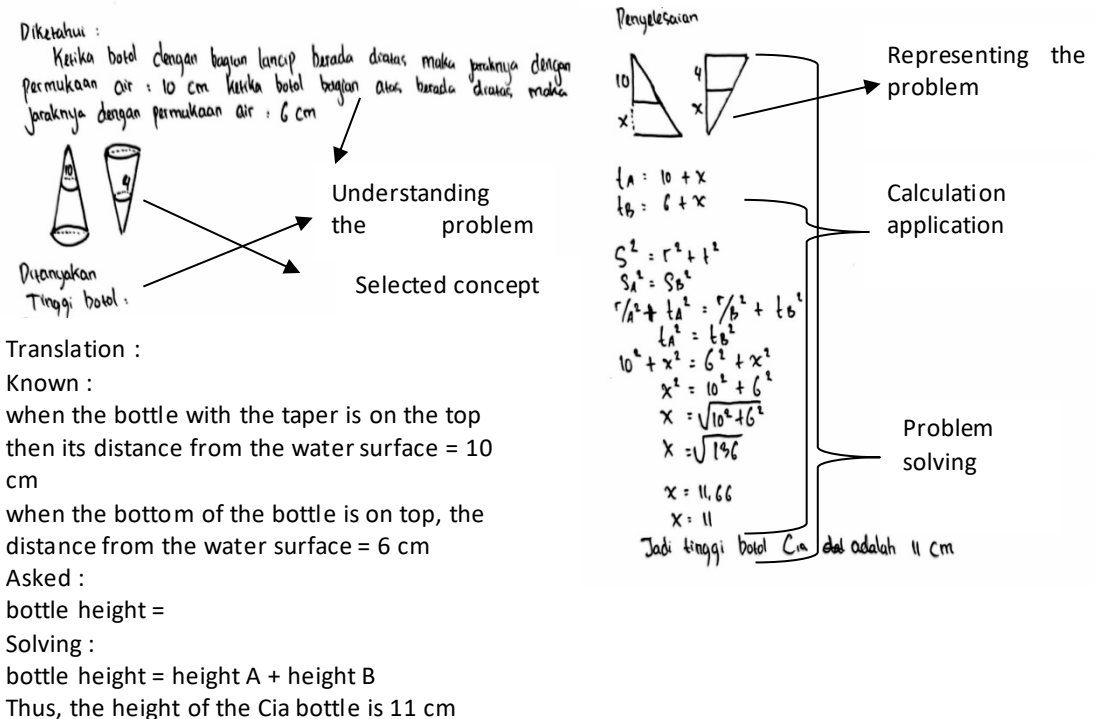 Diketahui :
Ketika botol dengan bagian lancip berada diatas maka jaraknya dengan
permukaan air : 10 cm ketika botol bagian atas berada diatas maka
jaraknya dengan permukaan air : 6 cm
10
4
Ditanyakan
Tinggi botol :
Understanding
the problem
Selected concept
Translation :
Known :
when the bottle with the taper is on the top
then its distance from the water surface = 10
cm
when the bottom of the bottle is on top, the
distance from the water surface = 6 cm
Asked :
bottle height =
Solving :
bottle height = height A + height B
Thus, the height of the Cia bottle is 11 cm
Penyelesaian
10 4
x x
tA : 10 + x
tB : 6 + x
S² = r² + t²
SA² = SB²
r/A² + tA² = r/B² + tB²
tA² = tB²
10² + x² = 6² + x²
x² = 10² + 6²
x = √10²+6²
x = √136
x = 11,66
x = 11
Jadi tinggi botol Cia adalah 11 cm
Representing the
problem
Calculation
application
Problem
solving